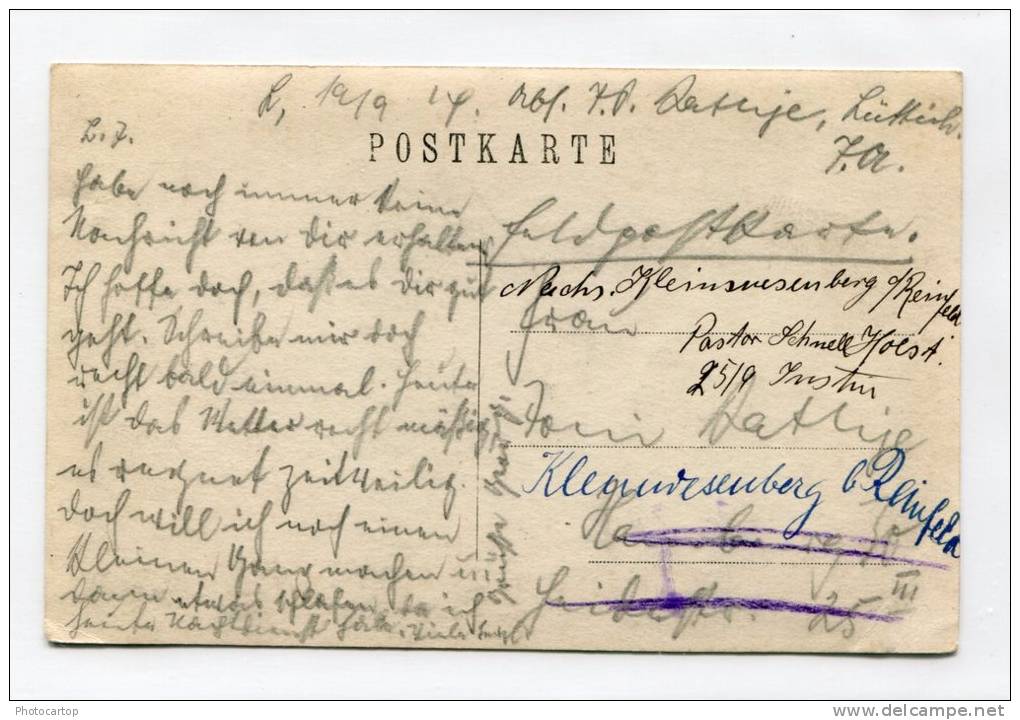 L, 19/9 14. Abs. F.P. Lathje, Lüttich.
F.A.
POSTKARTE
L. F.
Habe noch immer keine
Nachricht von Dir erhalten.
Ich hoffe doch, daß es Dir gut
geht. Schreibe mir doch
recht bald einmal. Heute
ist das Wetter recht mäßig,
es regnet zeitweilig.
Doch will ich noch einen
kleinen Gang machen und
dann etwas schlafen, da ich
heute Nachtdienst habe. Viele
Feldpostkarte.
Nachs. Kleinwesenberg b/Reinfeld
Frau
Pastor Schnell Holst.
25/9
Toni Lathje
Kleinwesenberg b Reinfeld
Hamburg
III
Heidestr. 25
Photocartop
delcampe.net